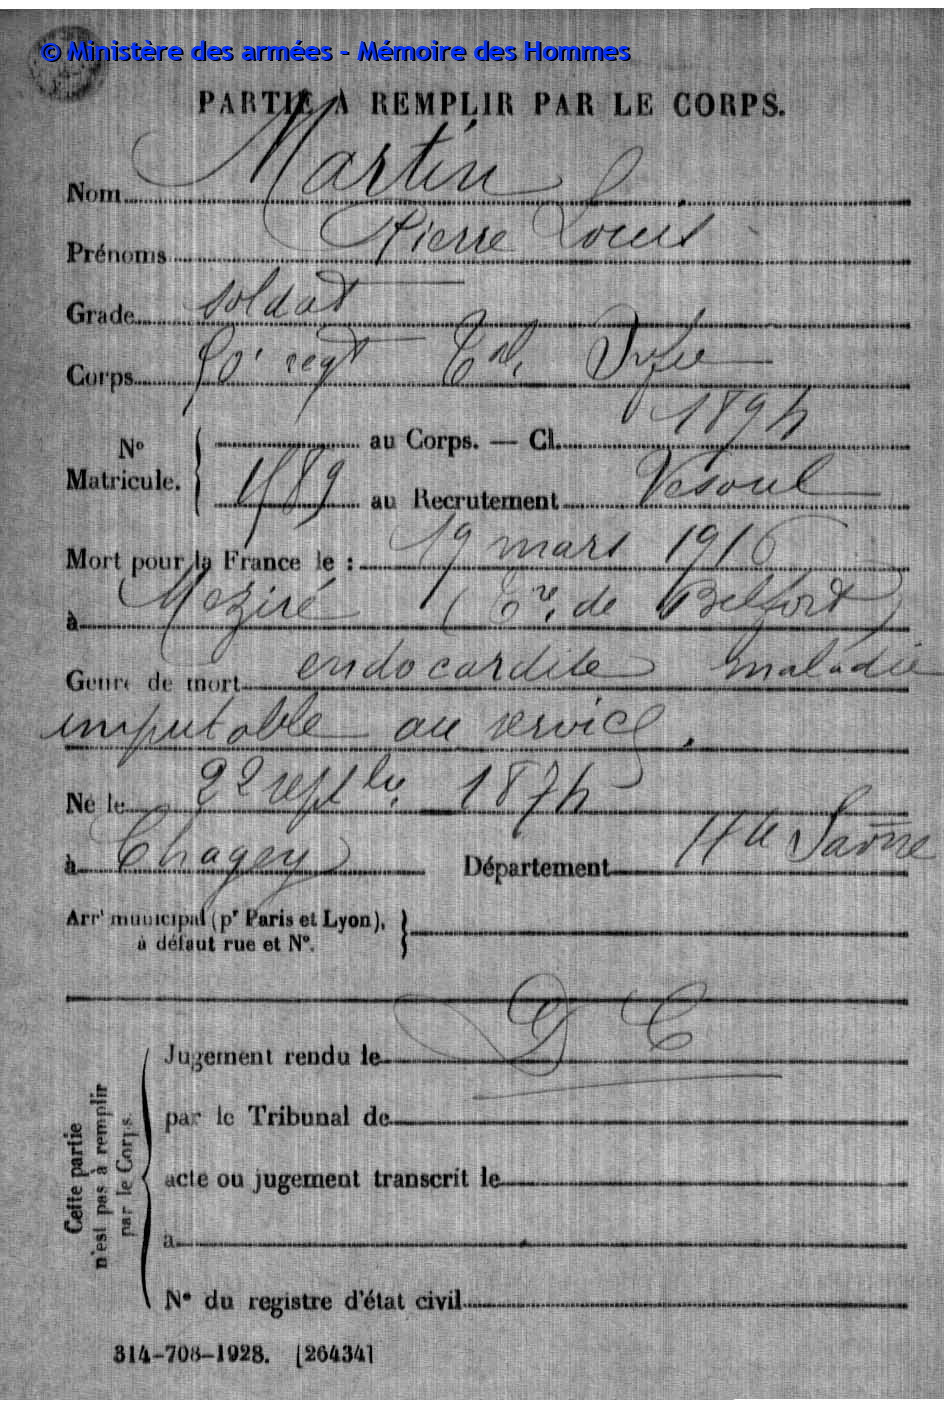 © Ministère des armées - Mémoire des Hommes
PARTIE À REMPLIR PAR LE CORPS.
Nom Martin
Prénoms Pierre Louis
Grade soldat
Corps régt Cal. Infie
N° Matricule. { au Corps. — Cl. 1894
1589 au Recrutement Vesoul
Mort pour la France le : 19 mars 1916
à Meziré (Tre. de Belfort)
Genre de mort endocardite maladie
imputable au service.
Né le 22 septbre. 1874
à Chagey Département Hte Saône
Arrt municipal (pr Paris et Lyon),
à défaut rue et N°. }
D C
Cette partie
n'est pas à remplir
par le Corps.
Jugement rendu le
par le Tribunal de
acte ou jugement transcrit le
à
N° du registre d'état civil
314-708-1928. [26434]